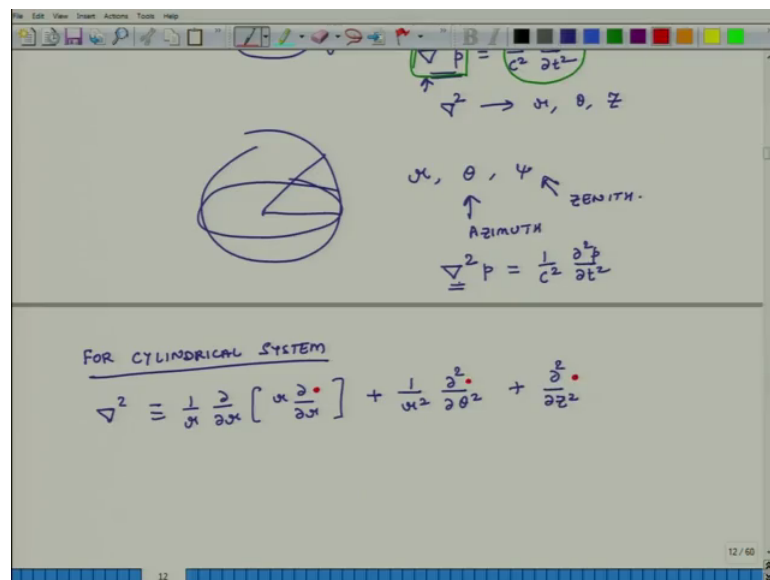 File Edit View Insert Actions Tools Help
∇ p = 1/c² ∂t²
∇² → r, θ, Z
r, θ, ψ
ZENITH.
AZIMUTH
∇²p = 1/c² ∂²p/∂t²
FOR CYLINDRICAL SYSTEM
∇² ≡ 1/r ∂/∂r [ r ∂•/∂r ] + 1/r² ∂²•/∂θ² + ∂²•/∂z²
12 / 60
12